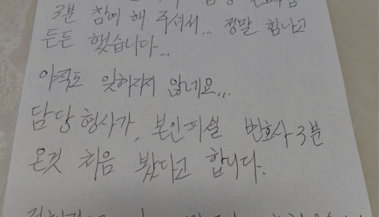 3분 참여 해 주셔서... 정말 힘나고
든든 했습니다...
아직도 잊혀지지 않네요...
담당형사가, 본인피셜 변호사 3분
온것 처음 봤다고 합니다.